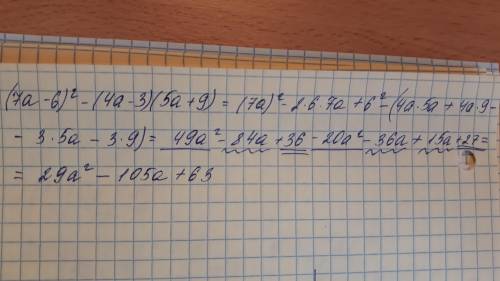 (7a - 6)² - (4a - 3)(5a + 9) = (7a)² - 2·6·7a + 6² - (4a·5a + 4a·9 -
- 3·5a - 3·9) = 49a² - 84a + 36 - 20a² - 36a + 15a + 27 =
= 29a² - 105a + 63